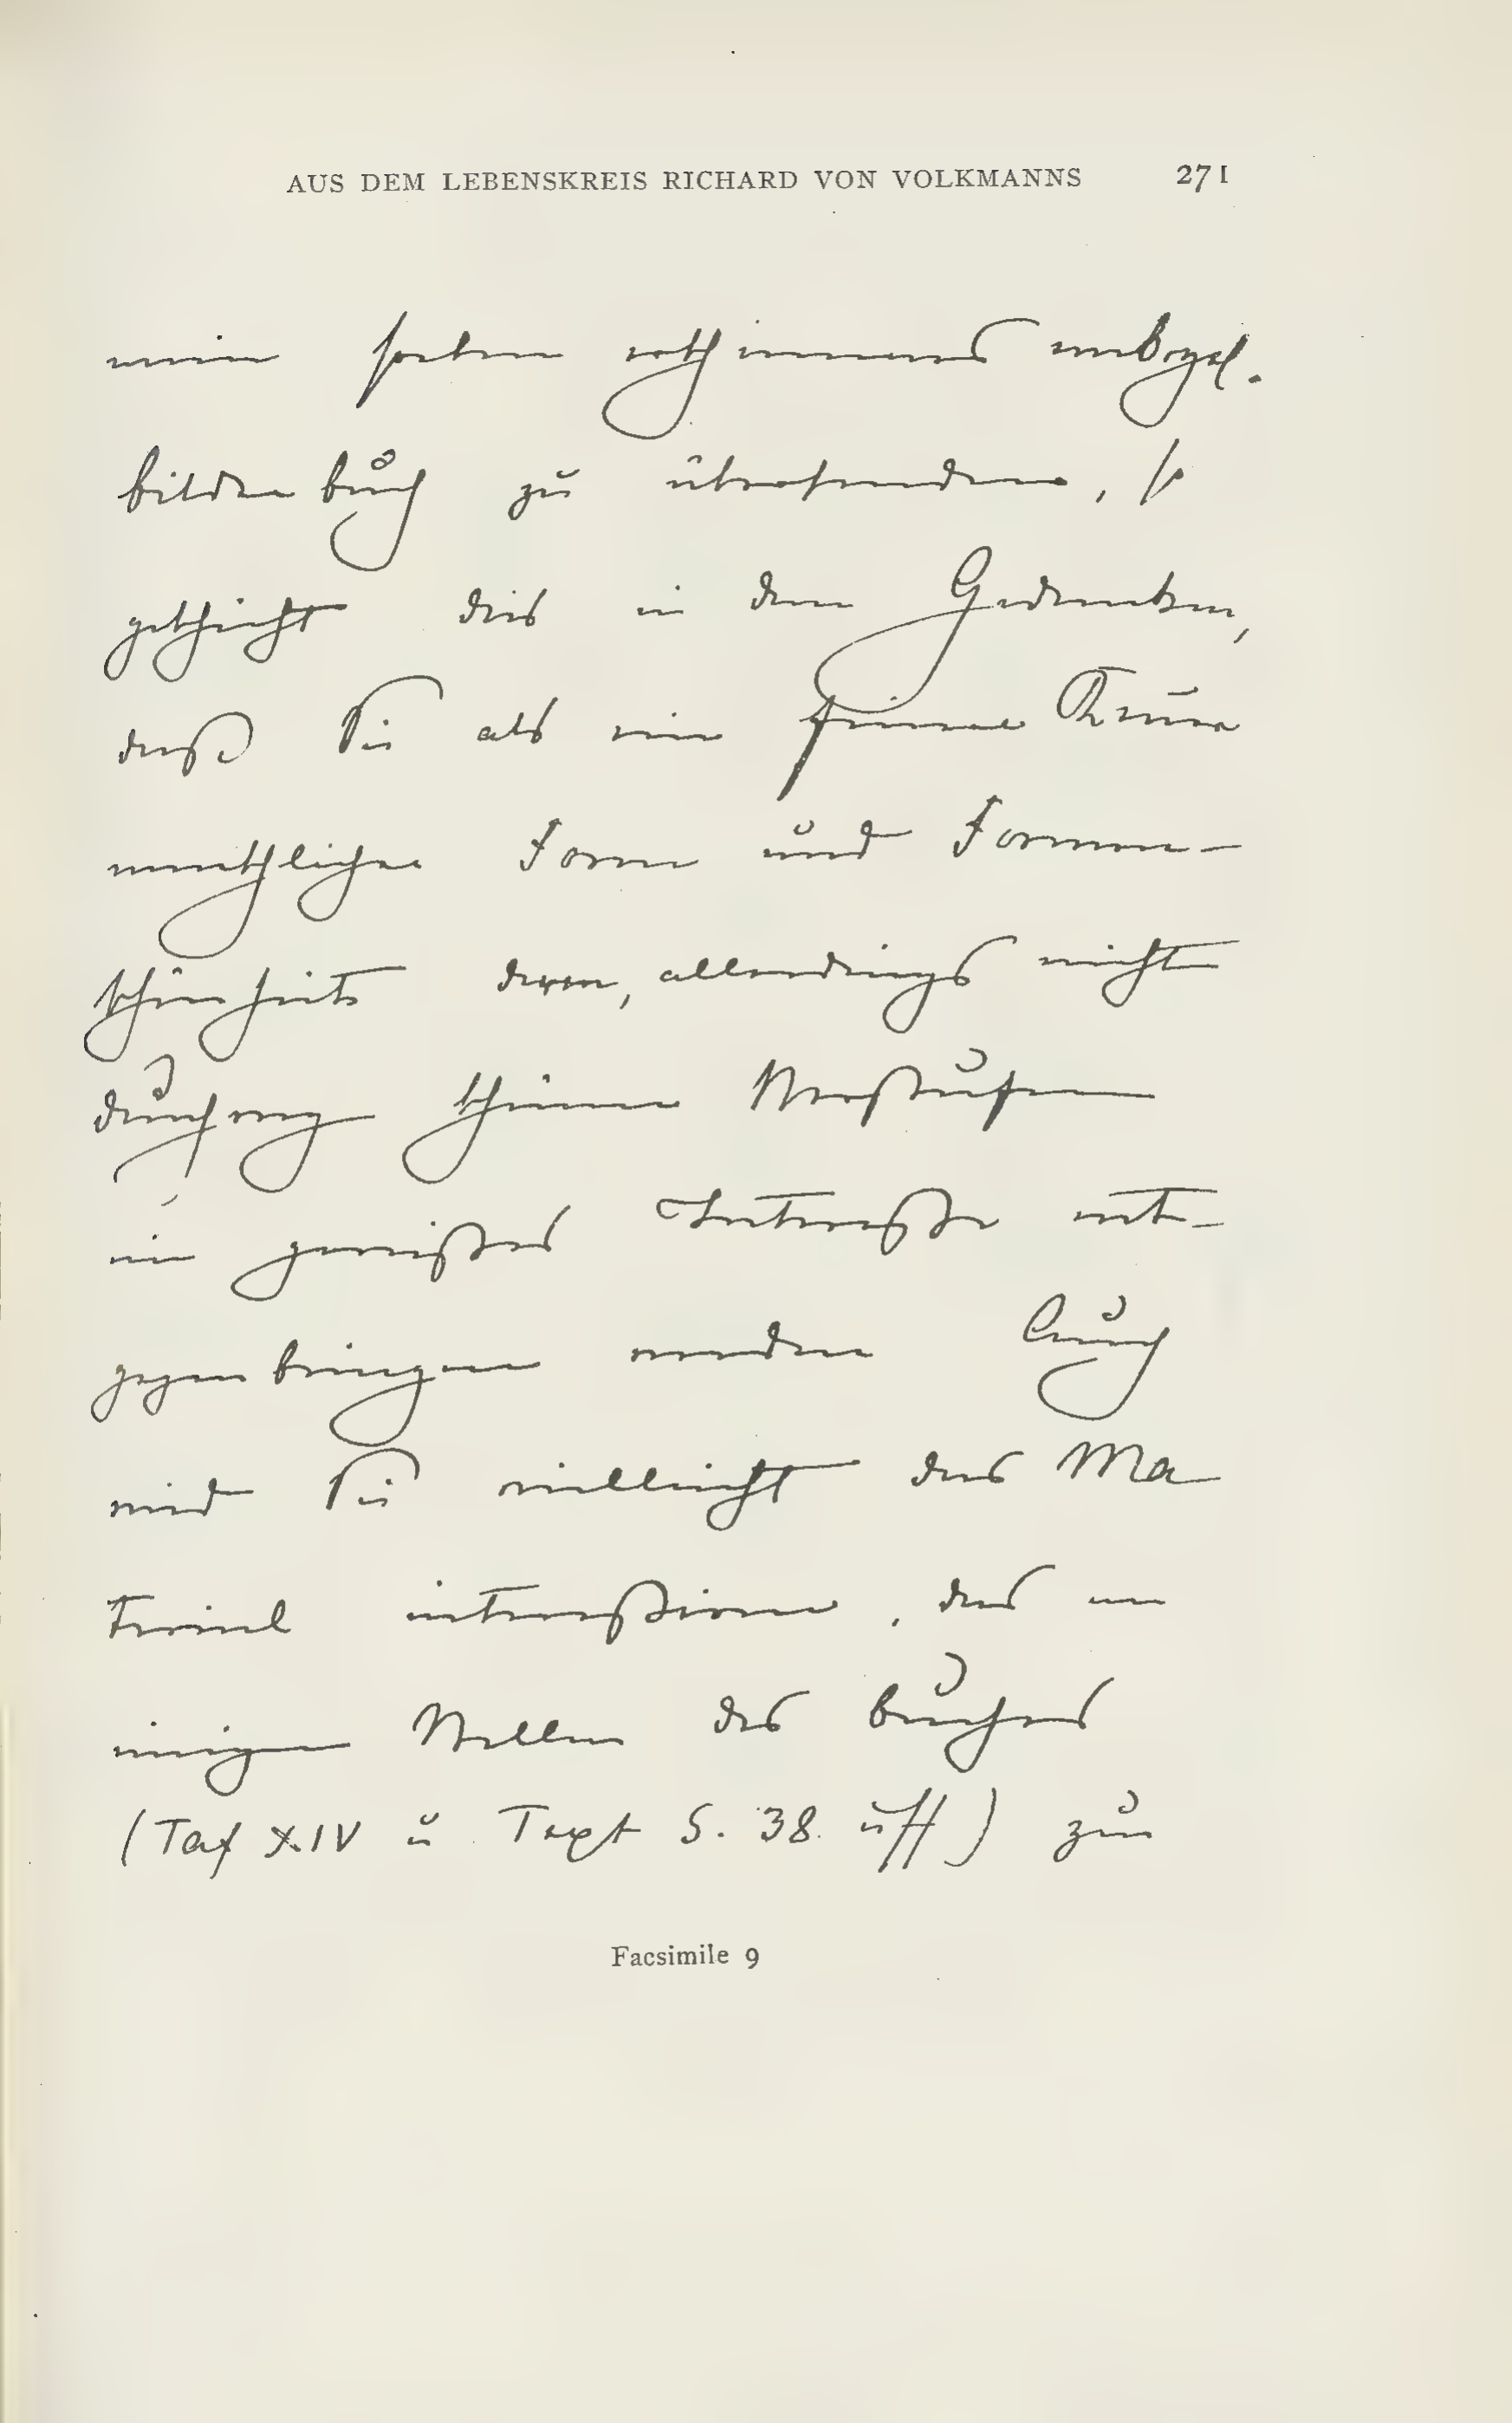 AUS DEM LEBENSKREIS RICHARD VON VOLKMANNS 271
mein soeben erschienenes embryol.
bilderbuch zu übersenden, so
geschieht dies in dem Gedanken,
daß Sie als ein feiner Kenner
menschlicher Form und Formen-
schönheit deren, allerdings nicht
durchweg schönen Vorstufen
ein gewisses Interesse ent-
gegenbringen werden Auch
wird Sie vielleicht das Ma
terial interessiren, das an
einigen Stellen des buches
(Taf XIV u Text S. 38. u ff) zur
Facsimile 9